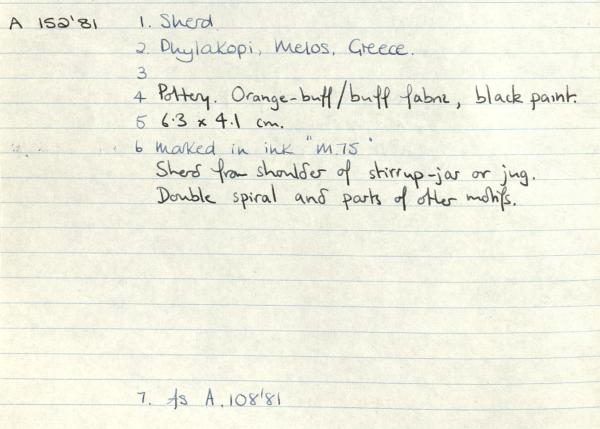 A 152'81
1. Sherd.
2 Phylakopi, Melos, Greece.
3
4 Pottery. Orange-buff/buff fabric, black paint.
5 6.3 x 4.1 cm.
6 Marked in ink "M.75"
Sherd from shoulder of stirrup-jar or jug.
Double spiral and parts of other motifs.
7. As A.108'81